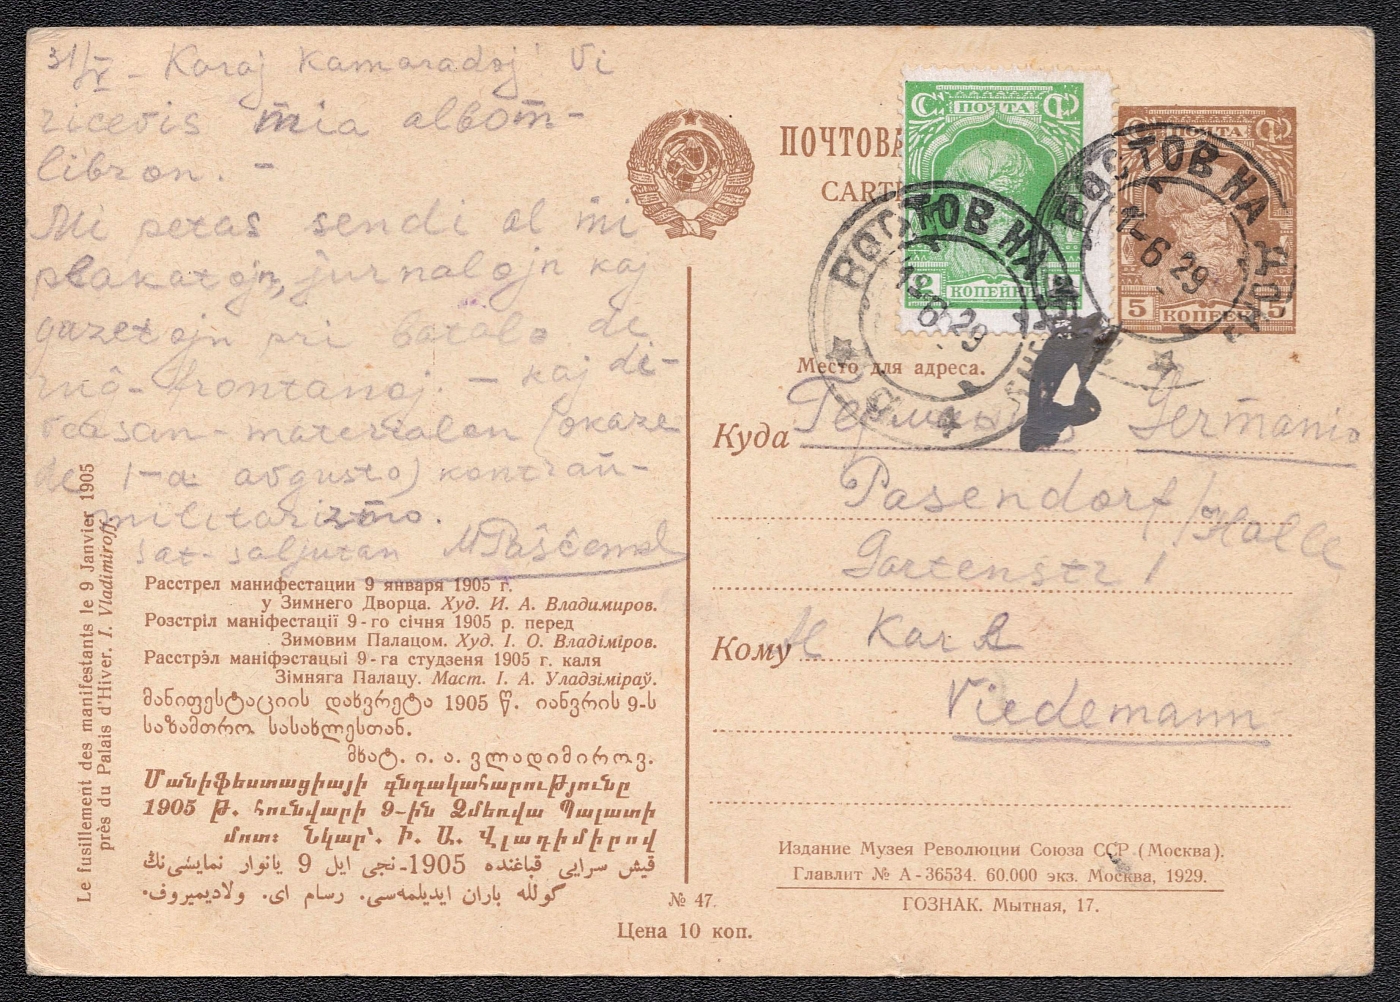 31/V – Karaj Kamaradoj! Vi
ricevis mia albom-
libron. –
Mi petas sendi al mi
plakatojn, jurnalojn kaj
gazetojn pri batalo de
ruĝ-frontanoj. – kaj di-
(okaze
de 1-a aŭgusto) kontraŭ-
militarizmo.
Sat-salutan
Расстрел манифестации 9 января 1905 г.
у Зимнего Дворца. Худ. И. А. Владимиров.
Розстріл маніфестації 9-го січня 1905 р. перед
Зимовим Палацом. Худ. І. О. Владіміров.
Расстрэл маніфэстацыі 9-га студзеня 1905 г. каля
Зімняга Палацу. Маст. І. А. Уладзіміраў.
მანიფესტაციის დახვრეტა 1905 წ. იანვრის 9-ს
საზამთრო სასახლესთან.
მხატ. ი. ა. ვლადიმიროვ.
Մանիֆեստացիայի գնդակահարությունը
1905 Թ. հունվարի 9-ին Ձմեռվա Պալատի
մոտ: Նկար՝. Ի. Ա. Վլադիմիրով
قیش سرایی قباغنده 1905-نجی ایل 9 یانوار نمایشی‌نڭ
گولله باران ایدیلمه‌سی. رسام ای. ولادیمیروف.
Le fusillement des manifestants le 9 Janvier 1905
près du Palais d'Hiver. I. Vladimiroff.
№ 47.
Цена 10 коп.
ПОЧТОВА
CART
ПОЧТА
2 КОПЕЙКИ
ПОЧТА
5 КОПЕЕК 5
РОСТОВ НА
1-6 29
РОСТОВ НА ДОНУ
1-6 29
Место для адреса.
Куда Германия Germanio
Pasendorf/Halle
Gartenstr 1
Кому Al Karl
Viedemann
Издание Музея Революции Союза ССР (Москва).
Главлит № А-36534. 60.000 экз. Москва, 1929.
ГОЗНАК. Мытная, 17.